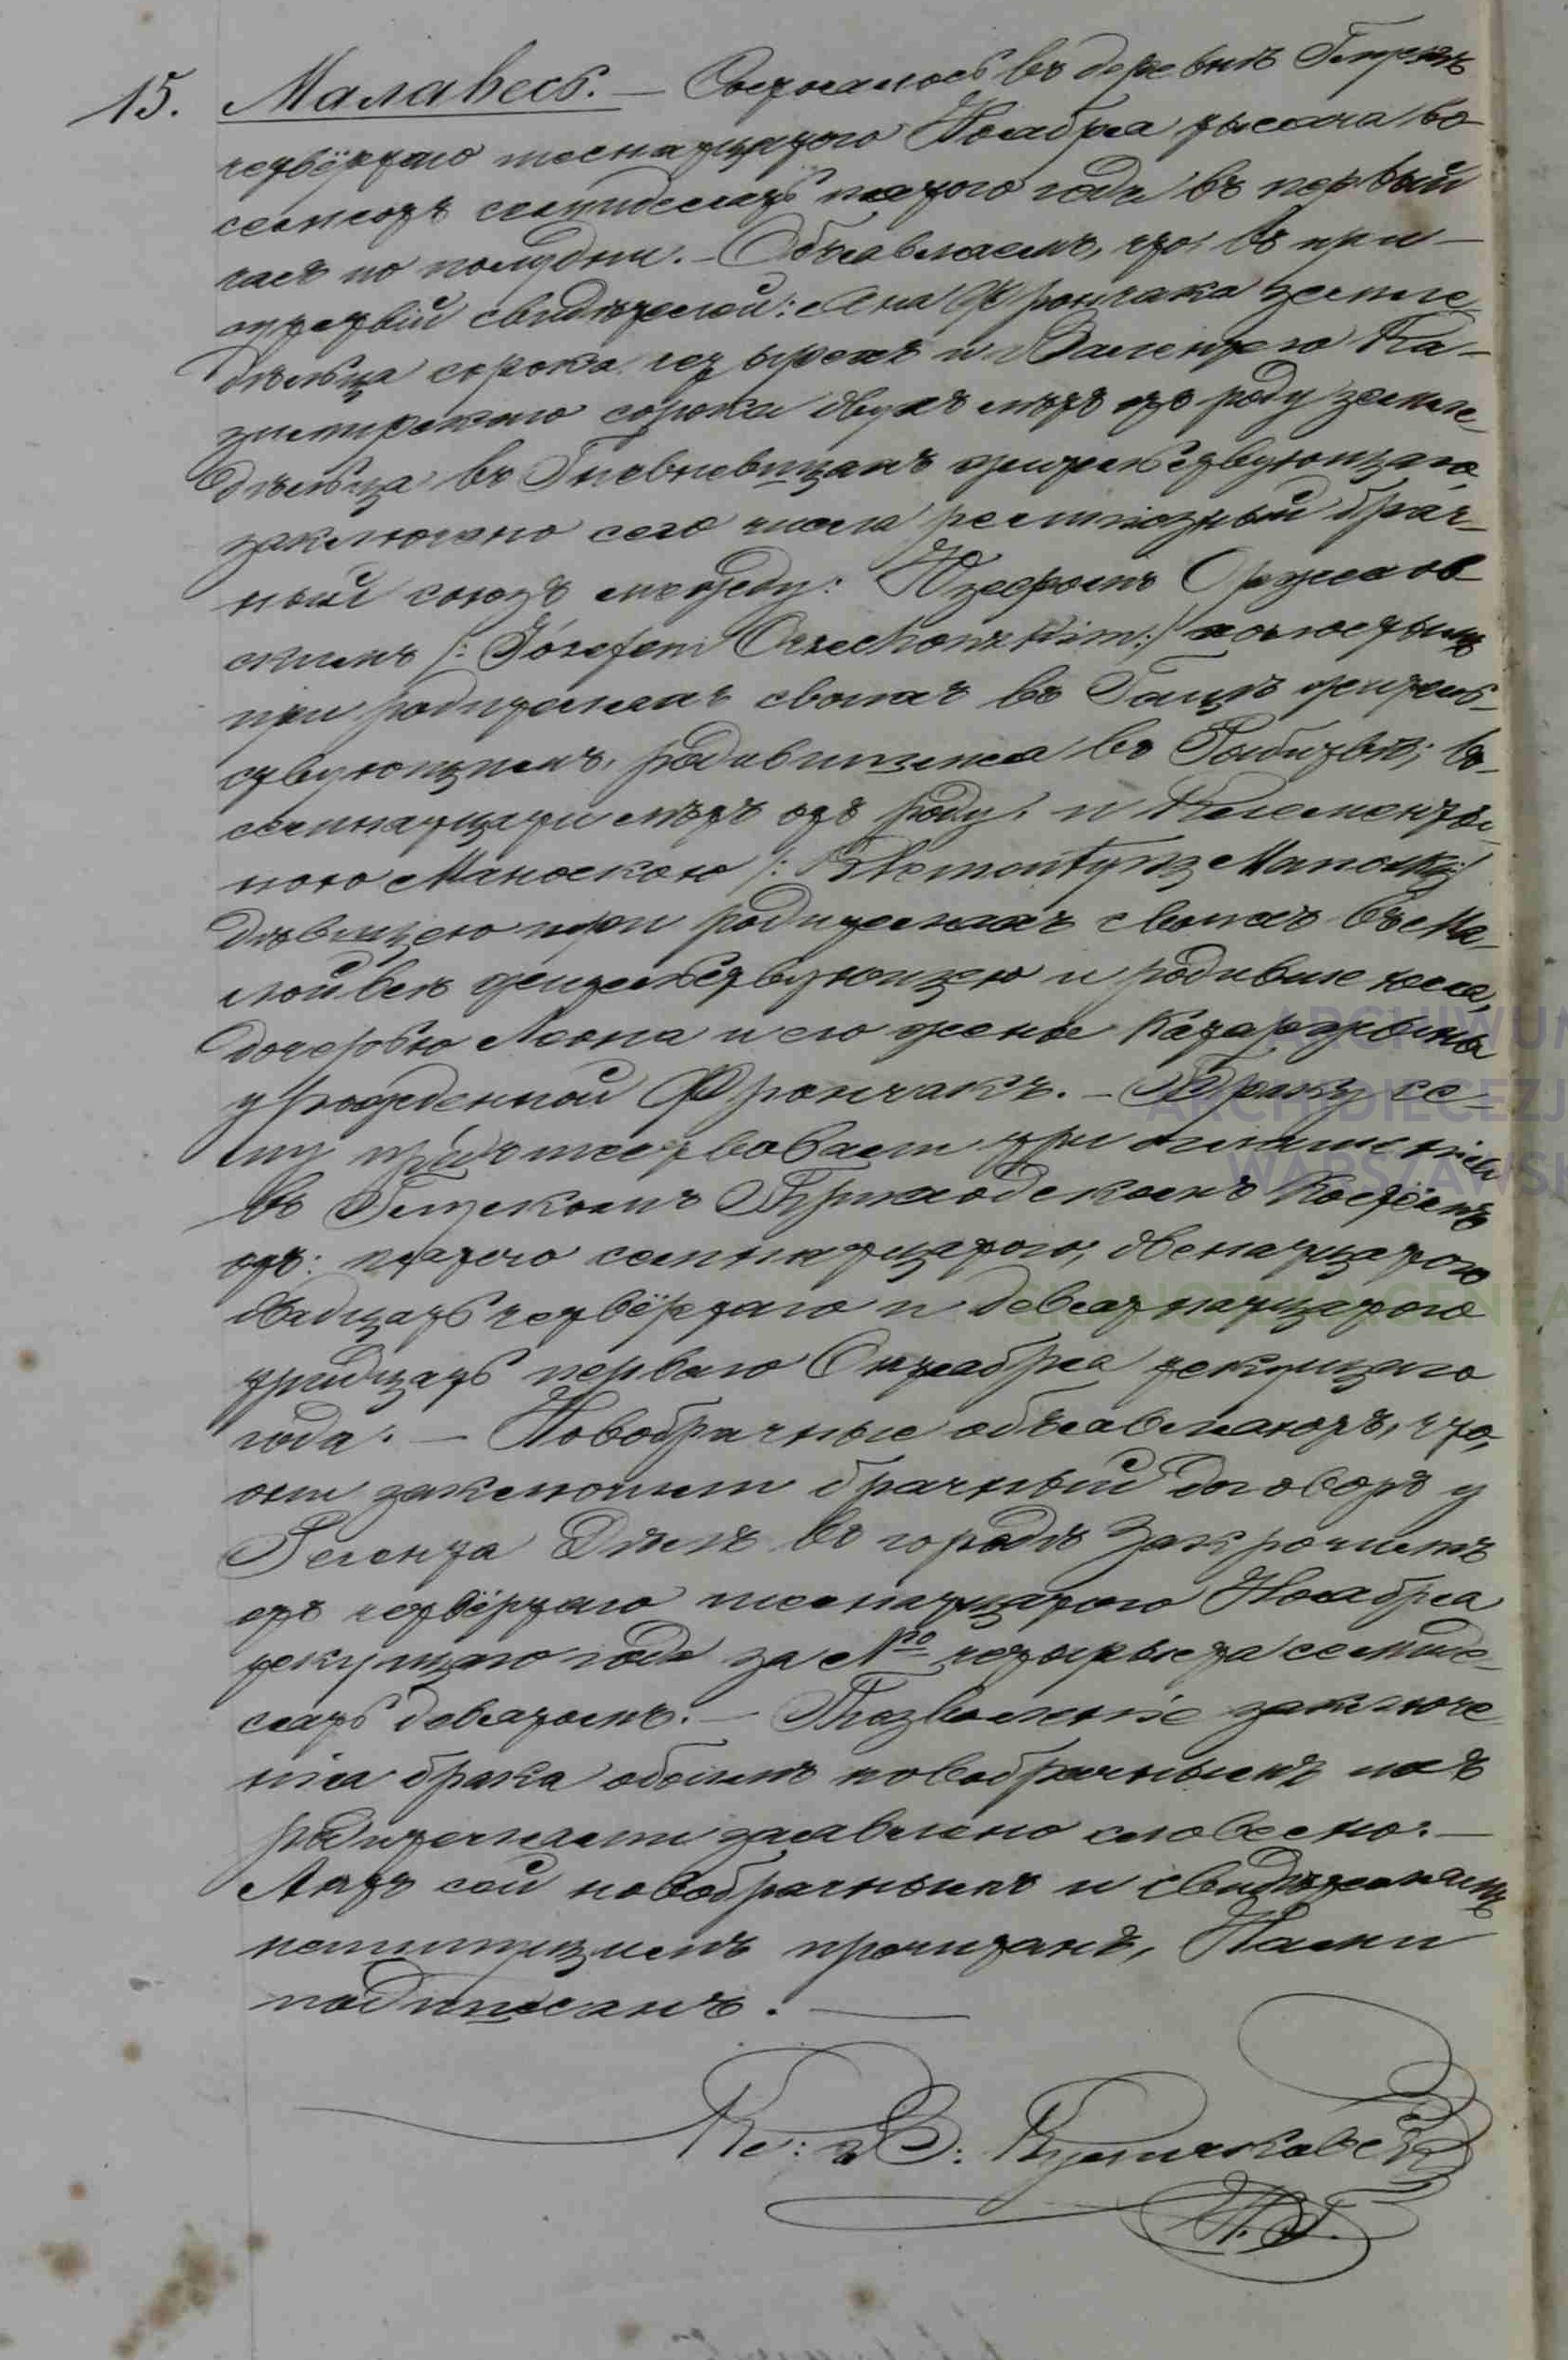 15. Малавесь. — Состоялось въ деревнѣ
четвёртаго шеснатцатого Ноября тысяча во-
семсотъ семидесятъ пятого года въ первый
часъ по полудни. — Объявляемъ, что, въ при-
сутствіи свидѣтелей: Яна Фрончака земле-
дѣльца сорока четырехъ и Валентего Ка-
зимирскаго сорока двухъ лѣтъ отъ роду земле-
дѣльца въ Гневневицахъ жительствующаго,
заключено сего числа религіозный брач-
ный союзъ между: Юзефомъ Оржехов-
скимъ /: Józefem Orzechowskim :/ холостымъ
при родителяхъ своихъ въ житель-
ствующимъ, родившимся въ во-
семнатцати лѣтъ отъ роду, и Клементы-
ною Маноскою /: Klementyną Manoską :/
дѣвицею при родителяхъ своихъ въ Ма-
лойвси жительствующею и родившеюся,
дочерью Леона и его жены Катаржины
урожденной Фрончакъ. — Браку се-
му предшествовали три оглашенія
въ Приходскомъ Костёлѣ
отъ: пятого семнатцатого, двенатцатого
двадцать четвёртаго и девятнатцатого
тридцать перваго Октября текущаго
года. — Новобрачные объявляютъ, что,
они заключили брачный договоръ у
Регента въ городѣ Закрочимѣ
отъ четвёртаго шеснатцатого Ноября
текущаго года за Nro четыреста семиде-
сятъ девятомъ. — Позволеніе заключе-
нія брака обоимъ новобрачнымъ ихъ
родителями заявлено словесно. —
Актъ сей новобрачнымъ и свидѣтелямъ
непишущимъ прочитанъ, Нами
подписанъ. —
Кс: В:
ARCHIWUM
ARCHIDIECEZJ
WARSZAWSK
SKANOTEKA GENEA